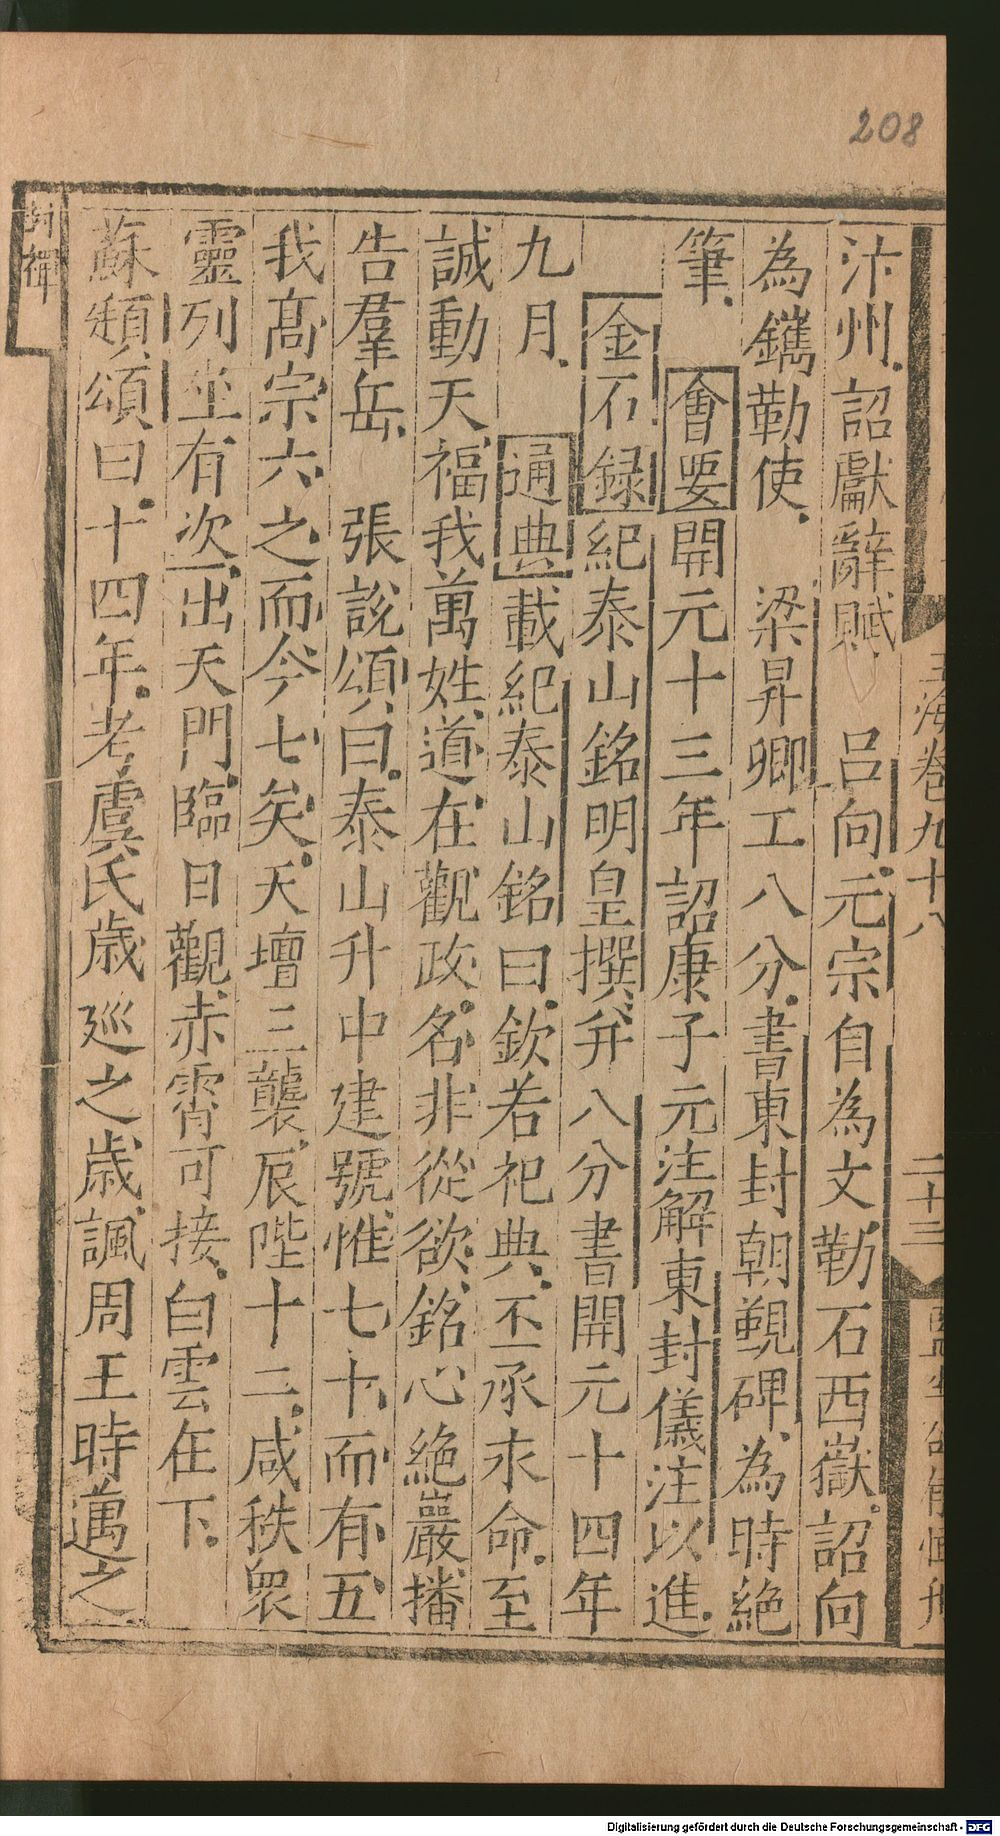 208
玉海卷九十八
二十三
汴州詔獻辭賦 呂向元宗自為文勒石西嶽詔向
為鐫勒使 梁昇卿工八分書東封朝覲碑為時絶
筆 會要開元十三年詔康子元注解東封儀注以進
金石録紀泰山銘明皇撰并八分書開元十四年
九月 通典載紀泰山銘曰欽若祀典丕承永命至
誠動天福我萬姓道在觀政名非從欲銘心絶巖播
告羣岳 張説頌曰泰山升中建號惟七十而有五
我髙宗六之而今七矣天壇三襲辰陛十二咸秩衆
靈列坐有次出天門臨日觀赤霄可接白雲在下
蘇頲頌曰十四年考虞氏歳廵之歳諷周王時邁之
封禪
Digitalisierung gefördert durch die Deutsche Forschungsgemeinschaft - DFG